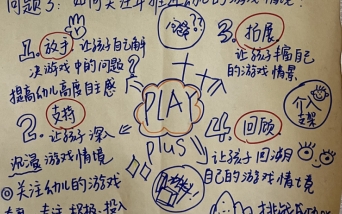 问题3：如何关注和推进幼儿的游戏情境？
问题??
1. 放手 让孩子自由解
决游戏中的问题
提高幼儿高度自主感
3. 拓展
让孩子丰富自己
的游戏情景
个人
支架
PLAY
plus
2. 支持
让孩子深入
沉浸游戏情境
◎关注幼儿的游戏
专注 积极 投入
4. 回顾
让孩子回溯
自己的游戏情境